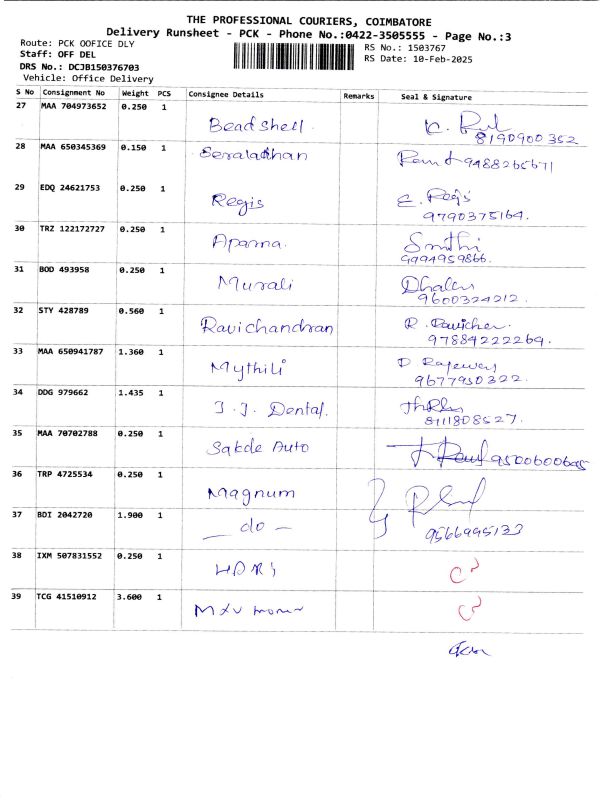 THE PROFESSIONAL COURIERS, COIMBATORE
Delivery Runsheet - PCK - Phone No.:0422-3505555 - Page No.:3
Route: PCK OOFICE DLY
RS No.: 1503767
Staff: OFF DEL
RS Date: 10-Feb-2025
DRS No.: DCJB150376703
Vehicle: Office Delivery
S No Consignment No Weight PCS Consignee Details Remarks Seal & Signature
27 MAA 704973652 0.250 1 Beadshell
8190900352
28 MAA 650345369 0.150 1 9488265671
29 EDQ 24621753 0.250 1 Regis E. Regis
9790375164.
30 TRZ 122172727 0.250 1 Aparna. Smithi
9994959866.
31 BOD 493958 0.250 1 Murali
9600324212.
32 STY 428789 0.560 1 Ravichandran
97884222269.
33 MAA 650941787 1.360 1 Mythili
9677950322.
34 DDG 979662 1.435 1 J.J. Dental.
8111808527.
35 MAA 70702788 0.250 1 Sakde Auto
36 TRP 4725534 0.250 1 Magnum
37 BDI 2042720 1.900 1 — do —
9566995133
38 IXM 507831552 0.250 1
39 TCG 41510912 3.600 1